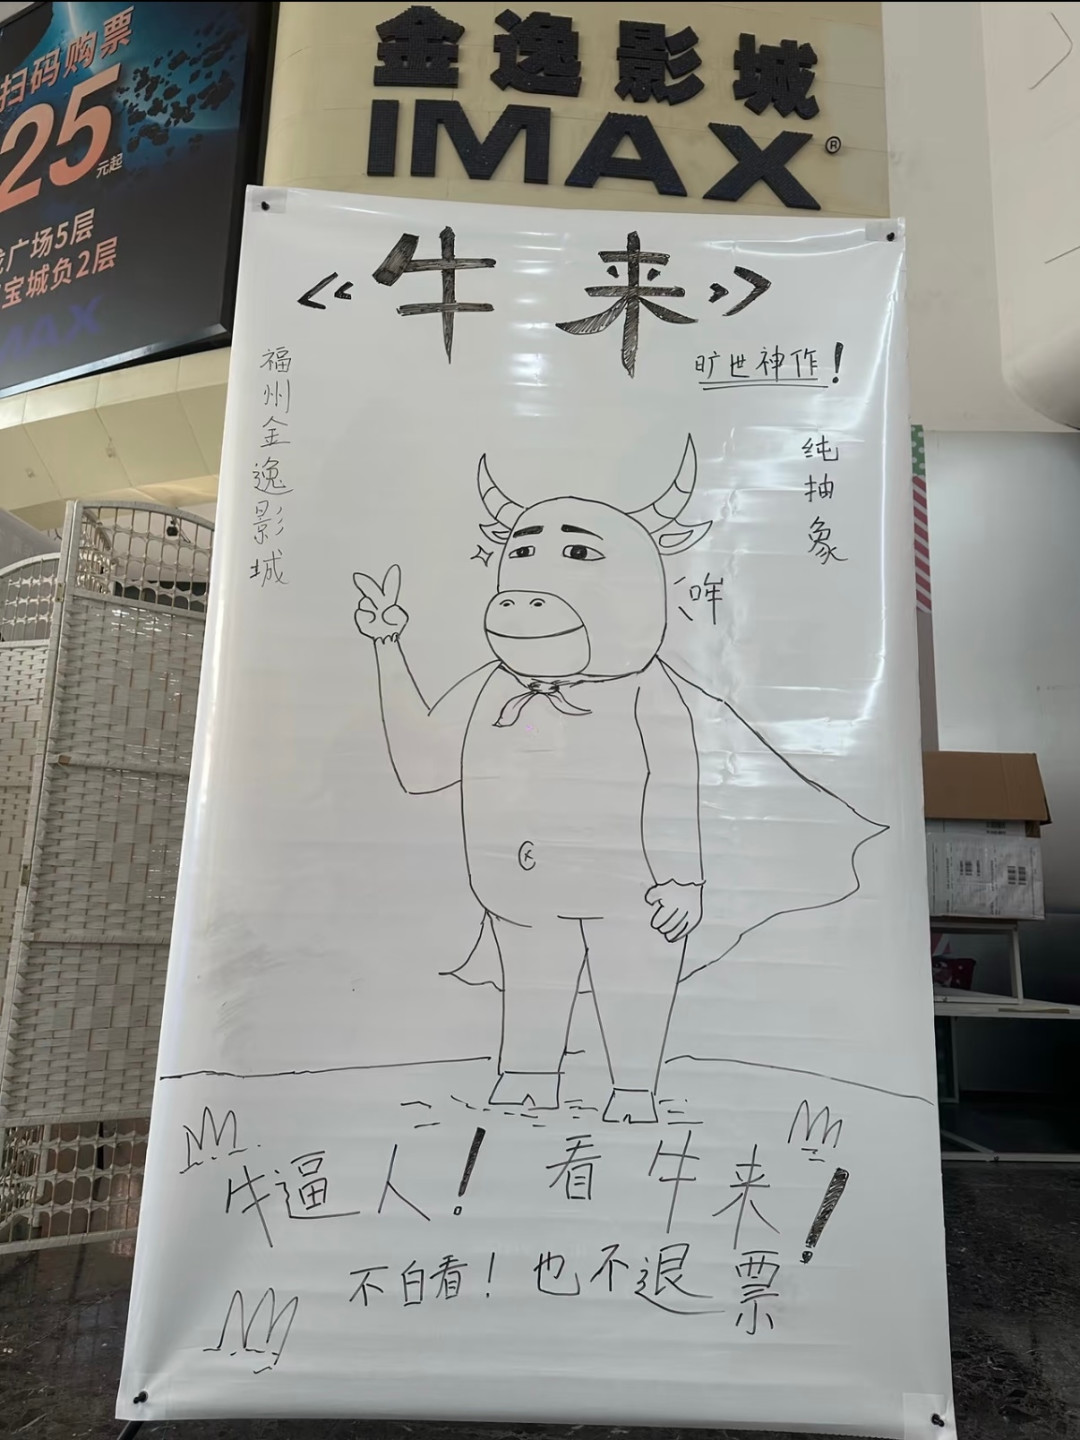 金逸影城
IMAX®
扫码购票
25元起
广场5层
宝城负2层
IMAX
《牛来》
旷世神作！
福州金逸影城
纯抽象
哞
牛逼人！看牛来！
不白看！也不退票